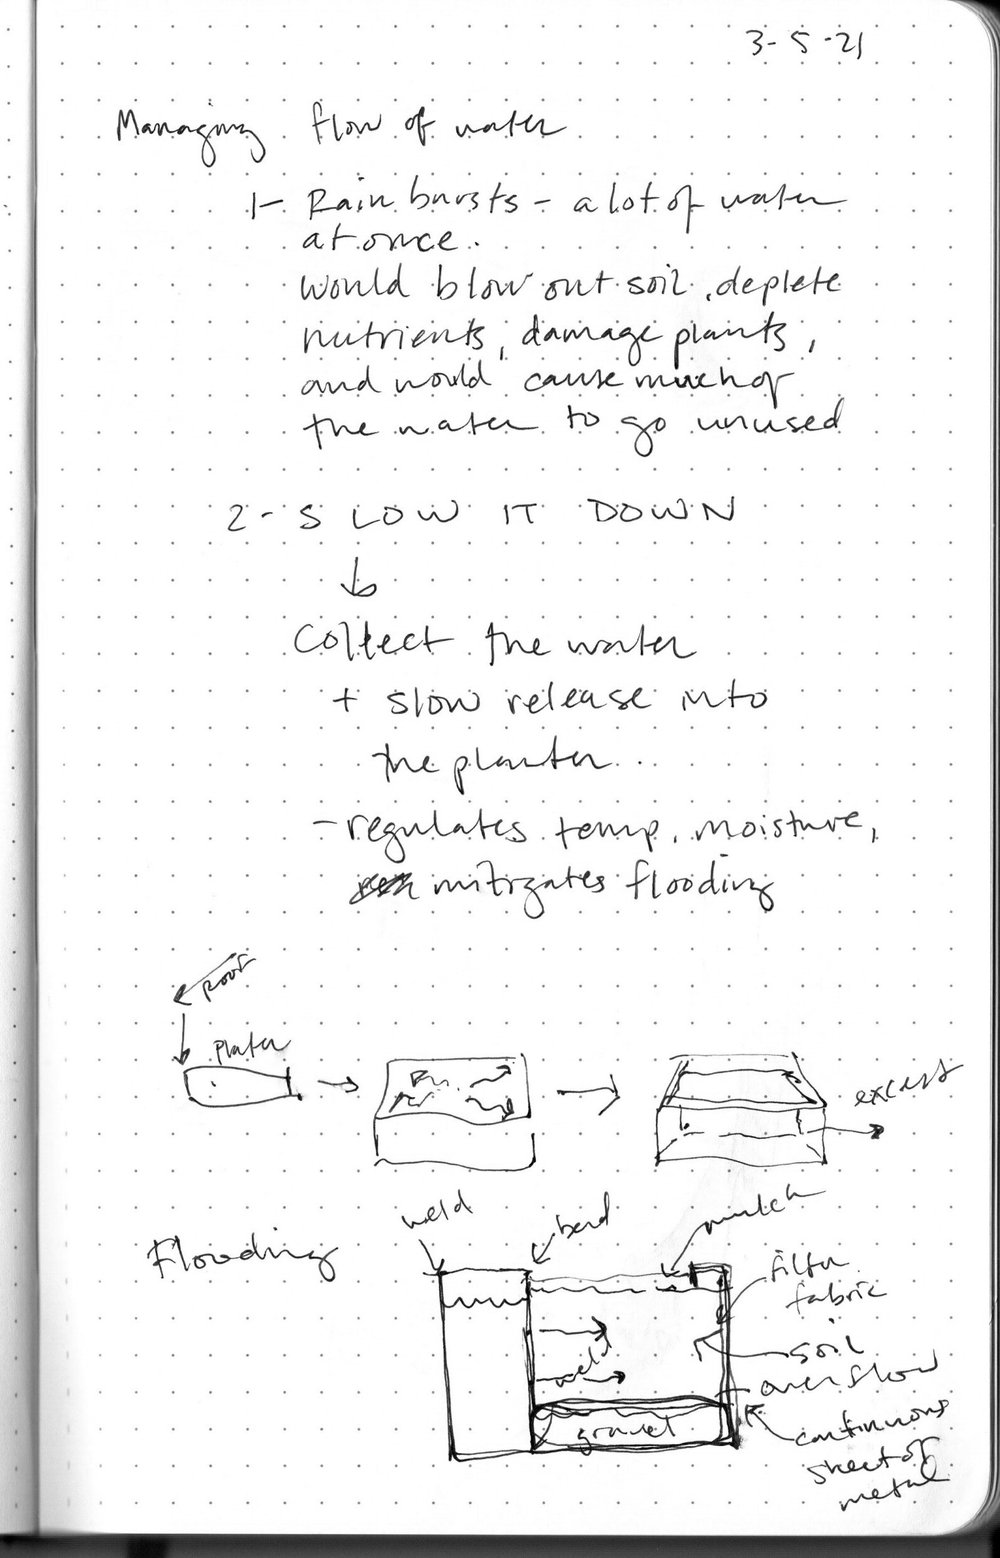 3-5-21
Managing flow of water
1- Rain bursts - a lot of water
at once.
would blow out soil, deplete
nutrients, damage plants,
and would cause much of
the water to go unused
2- SLOW IT DOWN
Collect the water
+ slow release into
the planter.
- regulates temp, moisture,
mitigates flooding
roof
plater
excess
Flooding
weld
bend
mulch
filter
fabric
soil
weld
overflow
gravel
continuous
sheet of
metal